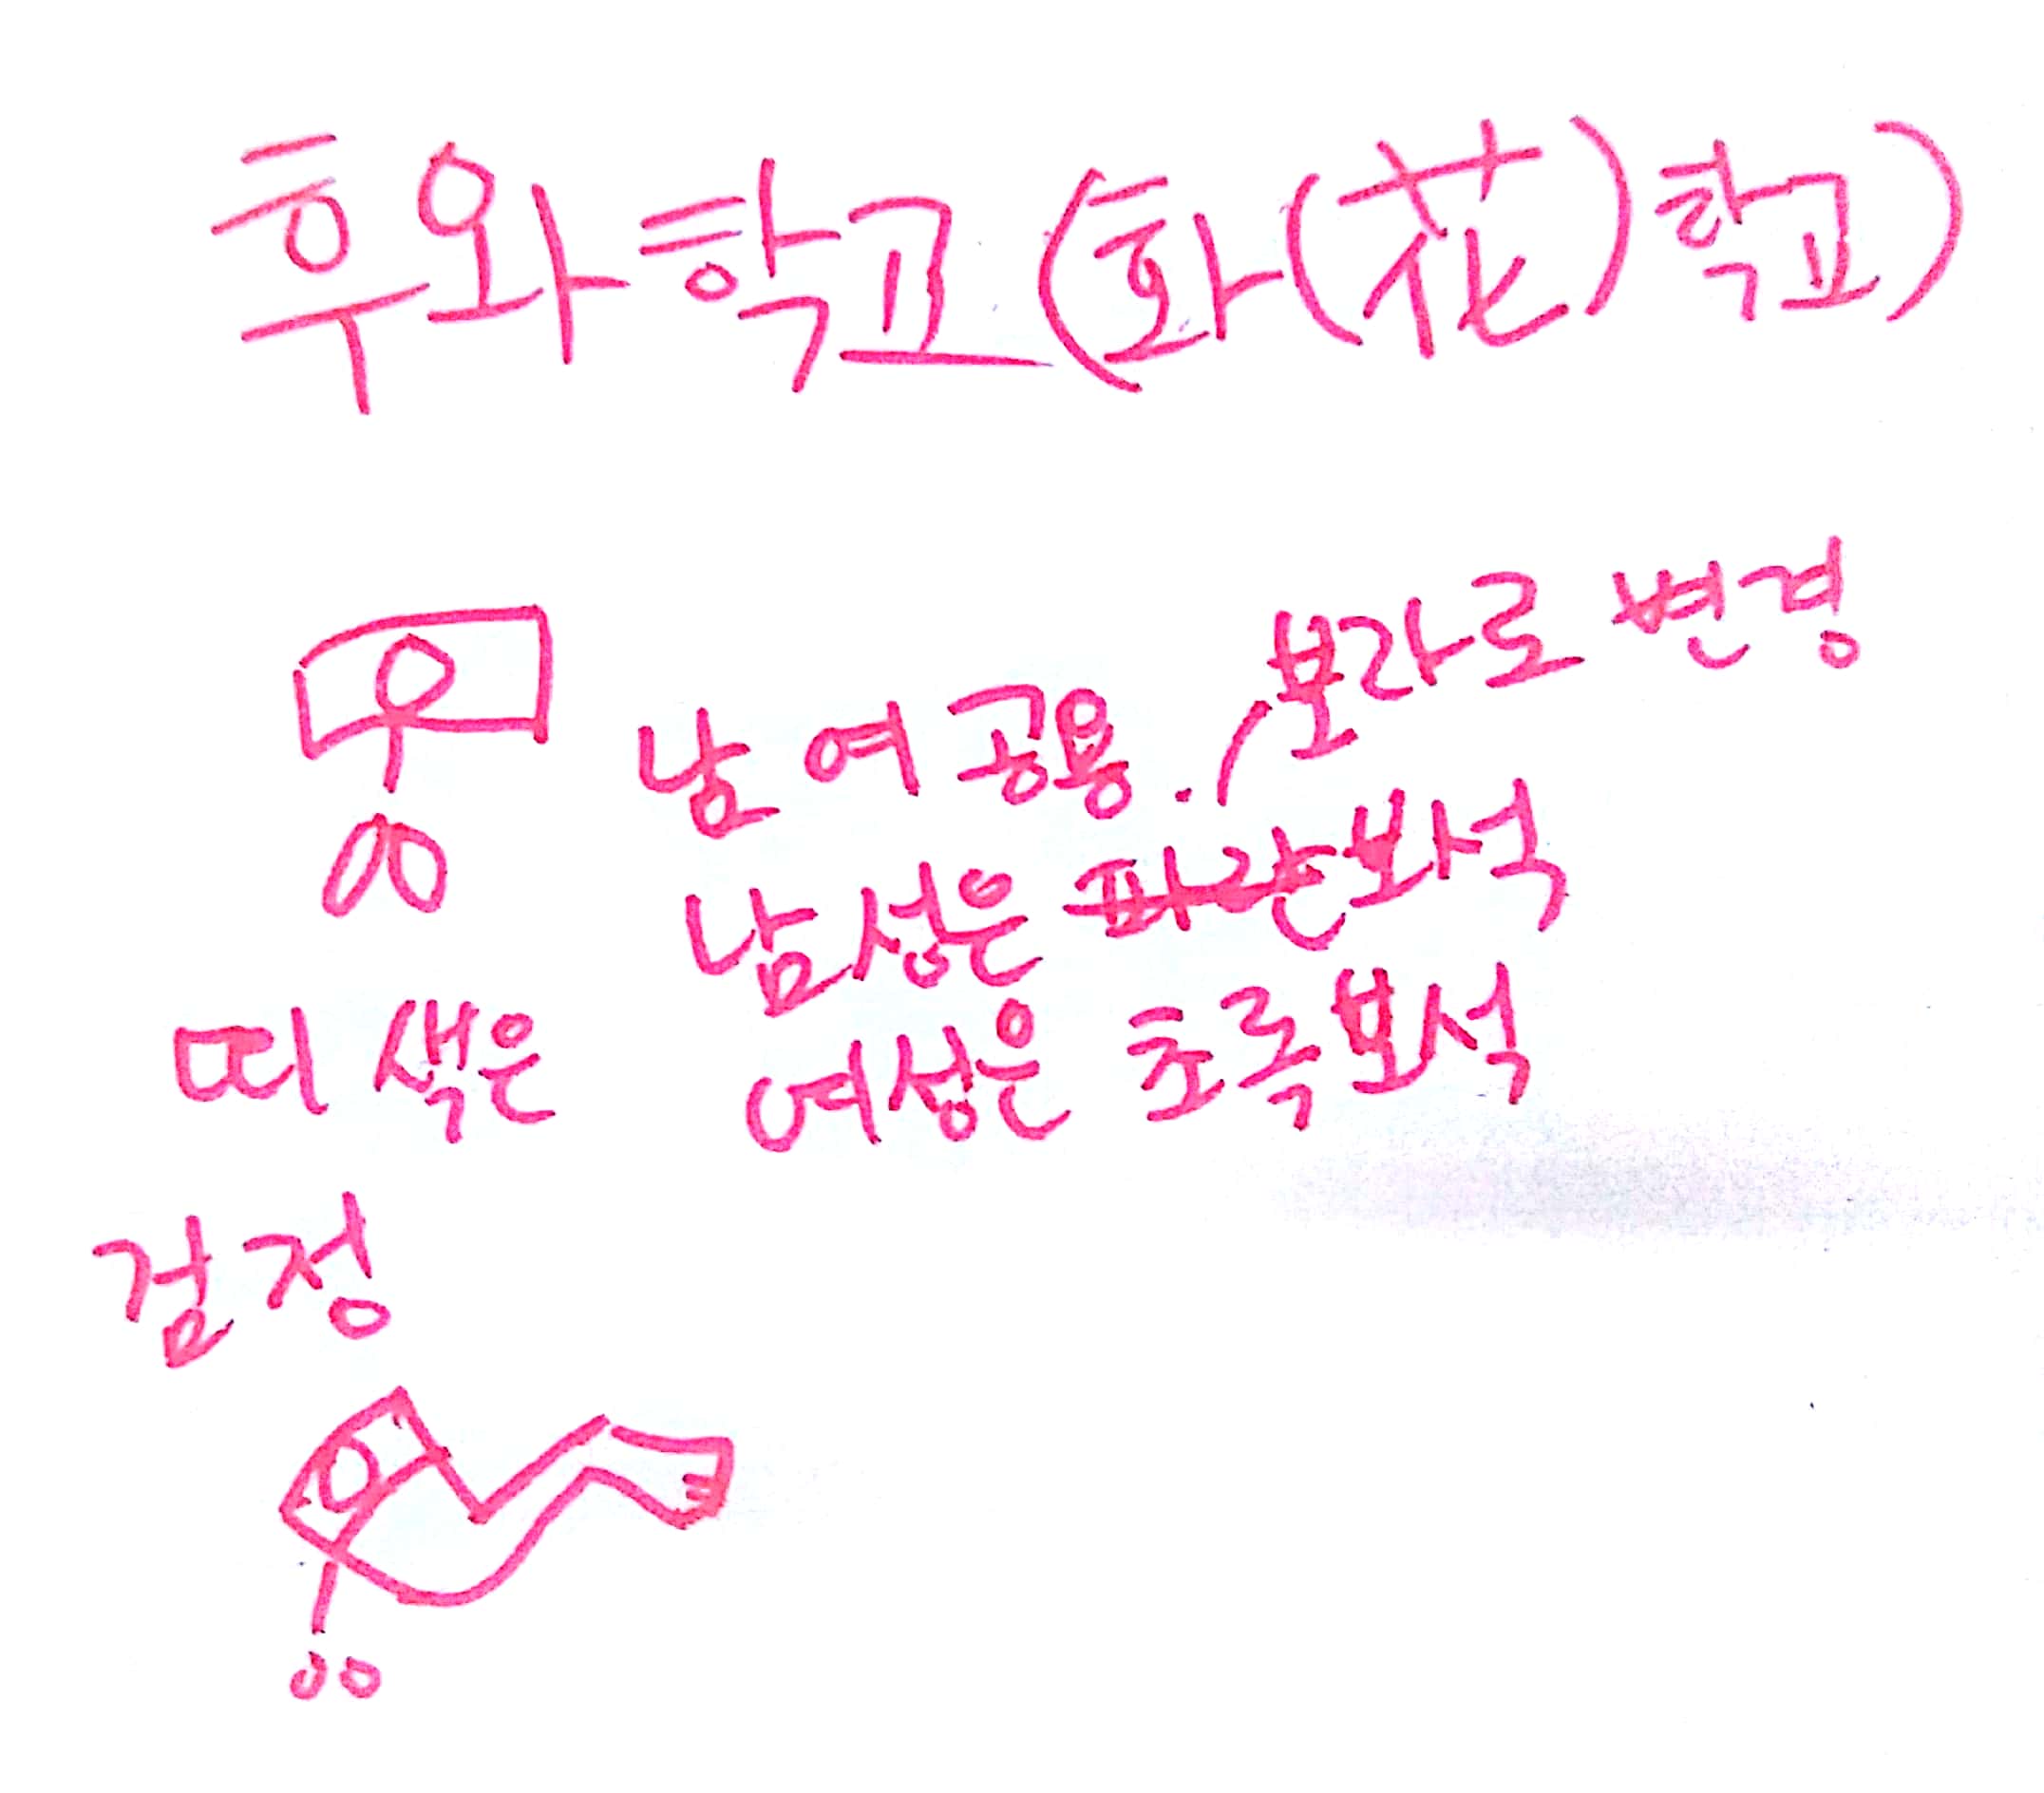 후와학교(화(花)학교)
보라로 변경
남여공용.
남성은 파란보석
띠색은
여성은 초록보석
검정